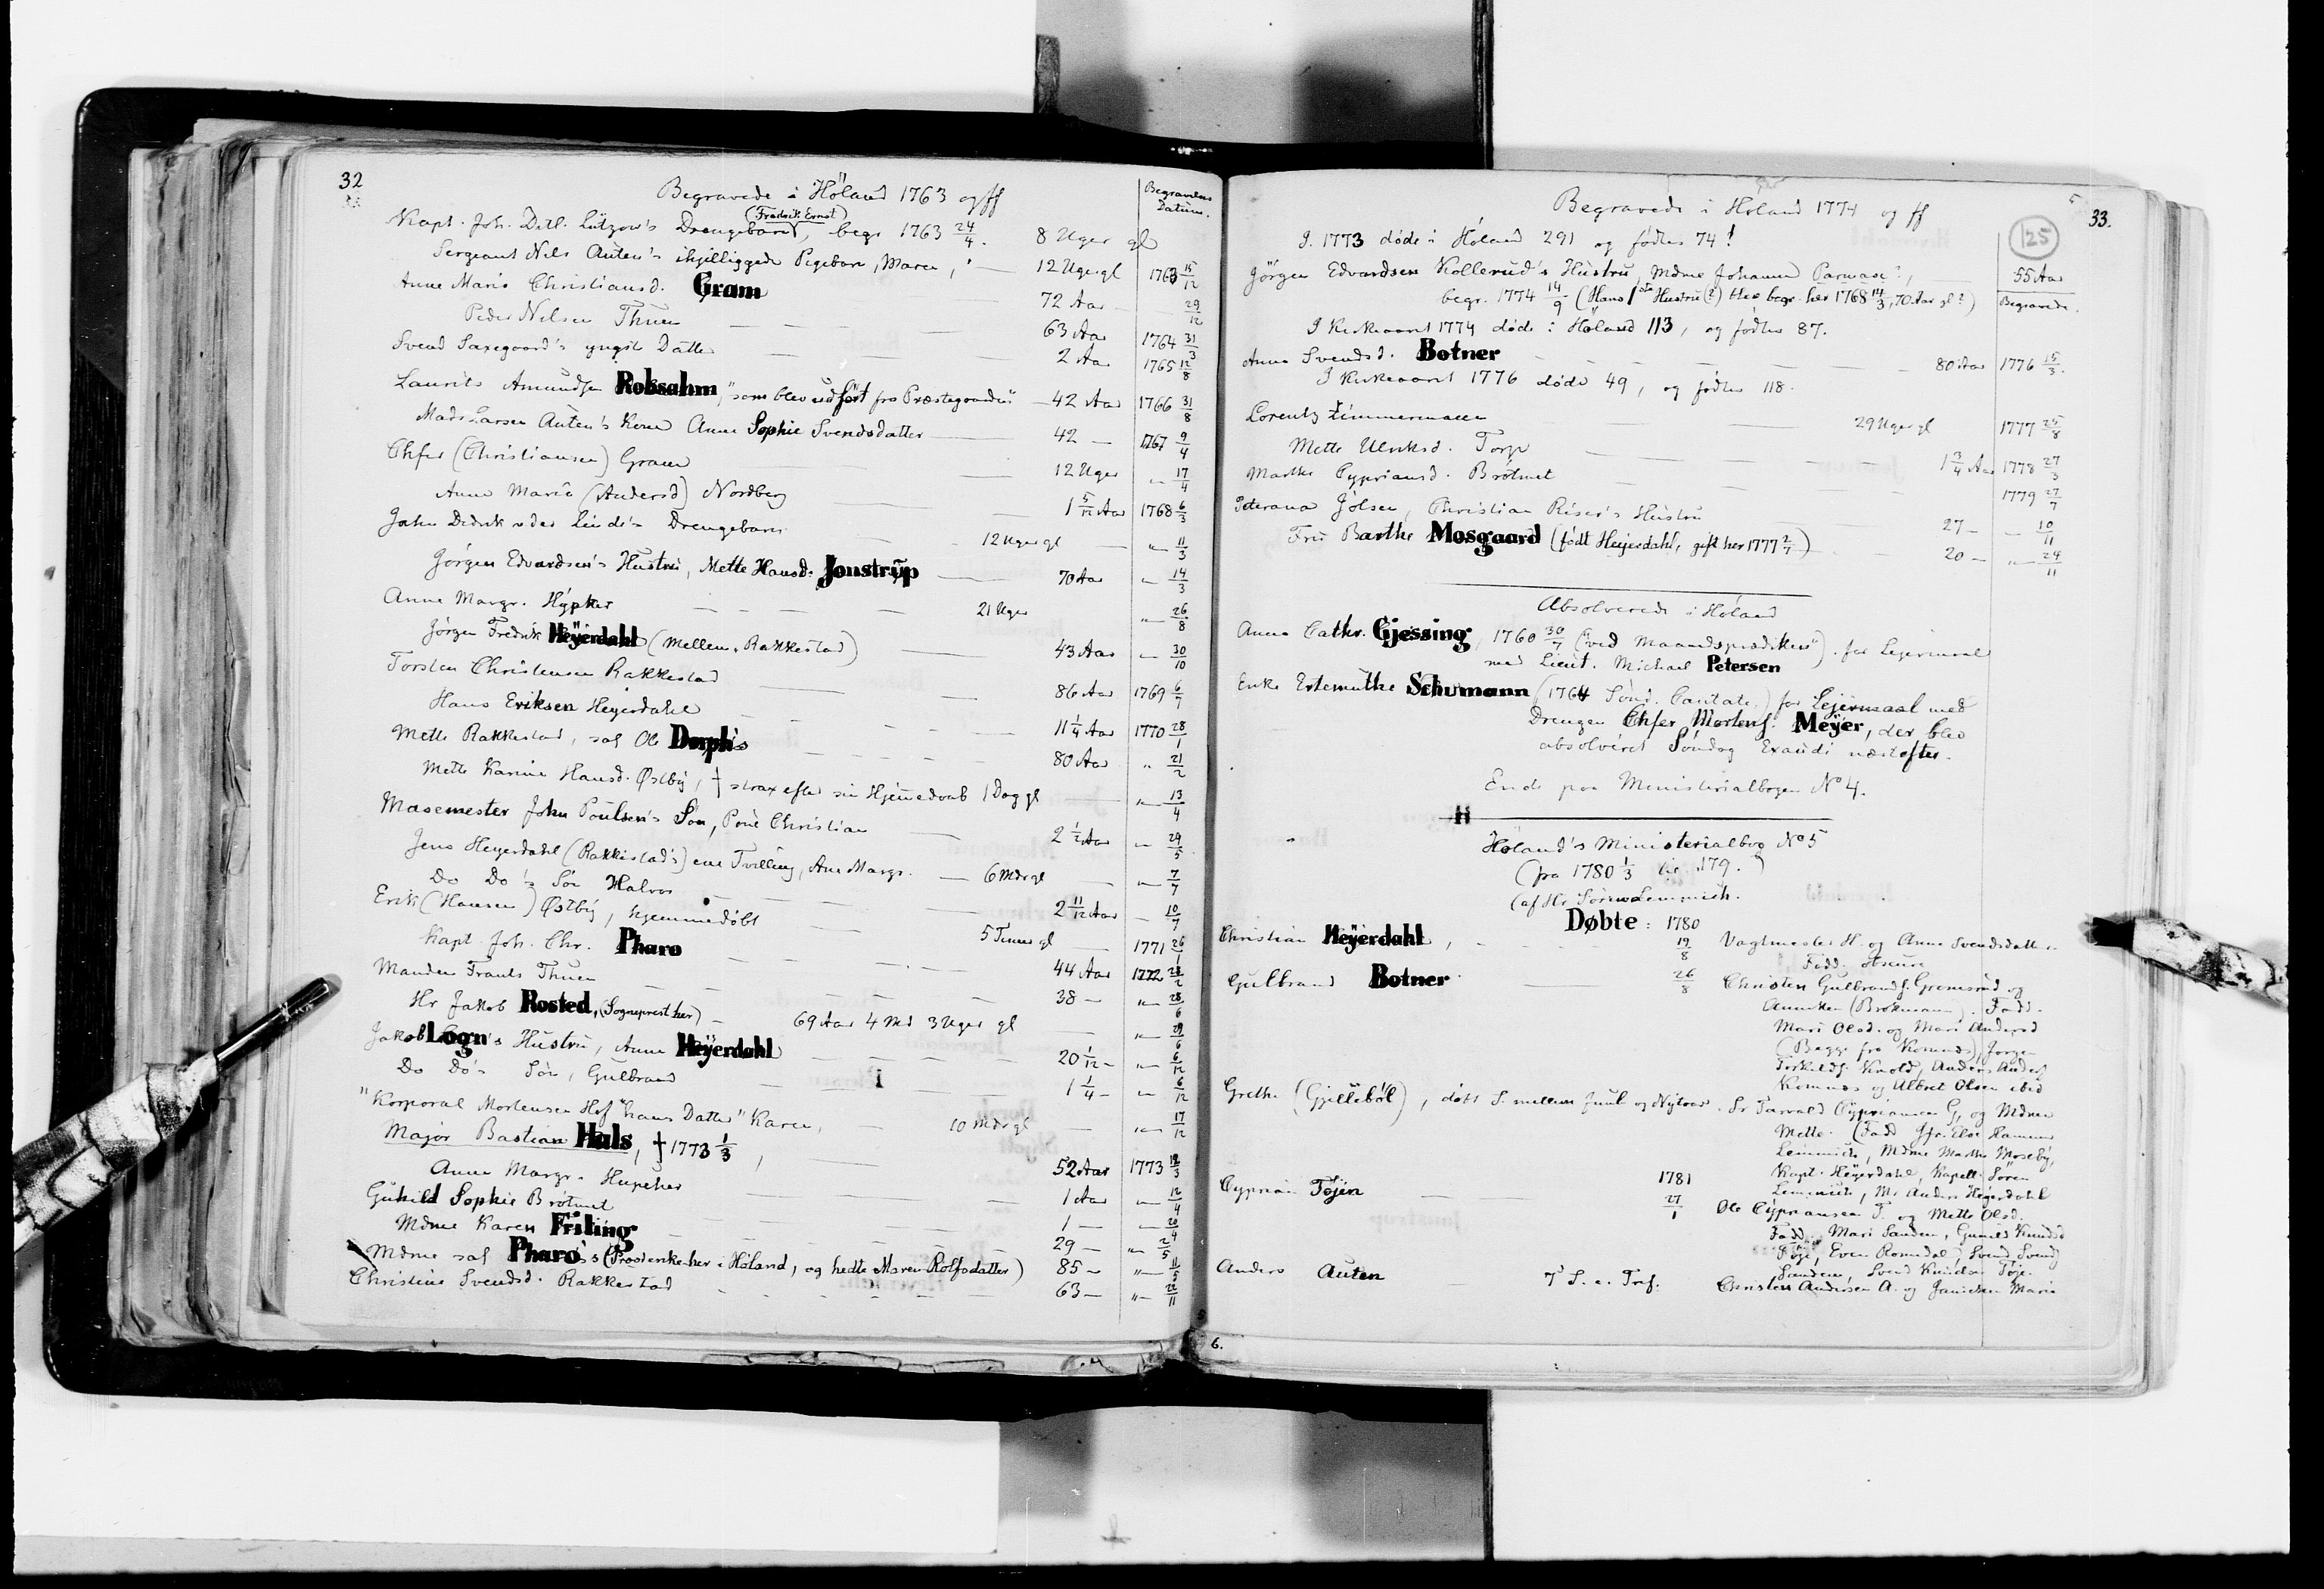 32
Begravede i Höland 1763 og ff
Begravelses Datum.
(Fredrik Ernst)
Kapt. Joh. Ditl. Lützow's Drengebarn, begr 1763 24/4. 8 Uger gl
Sergeant Nils Auten's ihjelliggede Pigebarn, Maren, 12 Uger gl 1763 15/12
Anne Marie Christiansd. Gram 72 Aar 29/12
Peder Nilsen Thuen 63 Aar 1764 31/3
Svend Saxegaard's yngste Datter 2 Aar 1765 12/8
Laurits Amundsen Robsahm, "som blev udført fra Præstegaarden" 42 Aar 1766 31/8
Mads Larsen Auten's Kone Anne Sophie Svendsdatter 42 — 1767 9/4
Chfer (Christiansen) Gram 12 Uger " 17/4
Anne Marie (Andersd) Nordberg 1 5/12 Aar 1768 6/3
John Didrik v der Lindè's Drengebarn 12 Uger gl " 11/3
Jörgen Edvardsen's Hustru, Mette Hansd. Jonstrup 70 Aar " 14/3
Anne Margr. Hýpker 21 Uger " 26/8
Jörgen Fredrik Heÿerdahl (Mellem-Rakkestad) 43 Aar " 30/10
Torsten Christensen Rakkestad 86 Aar 1769 6/7
Hans Eriksen Heyerdahl 11 1/4 Aar 1770 28/1
Mette Rakkestad, sal Ole Dorph's 80 Aar " 21/2
Mette Karine Hansd. Østby, † strax efter sin Hjemedaab 1 Dag gl " 13/4
Masemester John Poulsen's Søn, Poul Christian 2 1/2 Aar " 29/5
Jens Heyerdahl (Rakkestad's) ene Tvilling, Ane Margr. 6 Mdr gl " 7/7
Do Do's Sön Halvor 2 11/12 Aar — 10/7
Erik (Hansen) Østby, hjemmedøbt 5 Timer gl 1771 26/1
Kapt. Joh. Chr. Pharo 44 Aar 1772 28/2
Manden Frants Thuen 38 — " 28/6
Hr Jakob Rosted, (Sogneprest her) 69 Aar 4 Md 3 Uger gl " 29/6
Jakob Logn's Hustru, Anne Heÿerdahl 20 1/12 — " 6/12
Do Do's Sön, Gulbrand 1 1/4 — " 6/12
"Korporal Mortensen Hof "hans Datter" Karen, 10 Mdr gl " 17/12
Major Bastian Hals, † 1773 1/3, 52 Aar 1773 12/3
Anne Margr. Hupeher 1 Aar " 12/4
Gunild Sophie Brøtmet 1 — " 20/4
Mdme Karen Friling 29 — " 2/5
Mdme sal Pharo's (Provstenke her i Høland, og hedte Maren Rolfsdatter) 85 — " 11/5
Christine Svendsd. Rakkestad 63 — " 22/11
33.
125
Begravede i Høland 1774 og ff
I 1773 døde i Höland 291 og fødtes 74!
Jörgen Edvardsen Kollerud's Hustru, Mdme Johanne Parmase?, 55 Aar
begr. 1774 14/9 (Hans 1ste Hustru (?) blev begr. her 1768 14/3, 70 Aar gl?)
Begravede.
I Kirkeaaret 1774 døde i Höland 113, og fødtes 87.
Anne Svendsd. Botner 80 Aar 1776 15/3.
I Kirkeaaret 1776 døde 49, og fødtes 118.
Lorentz Zimmermann 29 Uger gl 1777 25/8
Mette Ulriksd. Torp 1 3/4 Aar 1778 27/3
Marthe Cypriansd. Brøtmet 1779 27/7
Peterana Jölsen, Christian Riser's Hustru 27 — " 10/11
Fru Barthe Mosgaard (født Heijerdahl, gift her 1777 2/7) 20 — " 24/11
Absolverede i Høland
Anne Cathr. Gjessing, 1760 30/7 ("ved Maanedspræken"). for Lejermaal
med Lieut. Michael Petersen
Enke Estemuthe Schumann (1764 Sönd. Cantate) for Lejermaal med
Drengen Chfer Mortens. Meÿer, der blev
absolvéret Söndag Exaudi næstefter.
Ende paa Ministerialbogen No 4.
Høland's Ministerialbog No 5
(fra 1780 1/3 til 179.)
(af Hr Sören Lemmich.
Døbte: 1780
Christian Heÿerdahl, 19/8 Vagtmester H. og Anne Svendsdatter.
Fadd. obscure
Gulbrand Botner 26/8 Christen Gulbrands. Gronsrud og
Anniken (Brokmann). Fadd.
Mari Olsd. og Mari Andersd
(Begge fra Komnes), Jörgen
Torkilds. Knold, Anders Anders.
Komnes og Albret Olsen ibid
Grethe (Gjellebøl), døbt S. mellem Juul og Nytaar. Sr Tarrald Cypriansen G, og Mdme
Mette. (Fadd Jfr. Else Hammer
Lemmich, Mdme Marthe Moseby,
Kapt. Heÿerdahl, Kapell. Sören
Lemmich, Mr Anders Heÿerdahl
Cyprian Tøjen 1781 27/1 Ole Cypriansen T. og Mette Olsd.
Fadd. Mari Sanden, Gunild Knudsd
Töje, Even Romsdal, Svend Svends
Sanden, Svend Knudsen Töje.
Anders Auten 7 S. e. Tref. Christen Andersen A. og Janicken Marie
6.